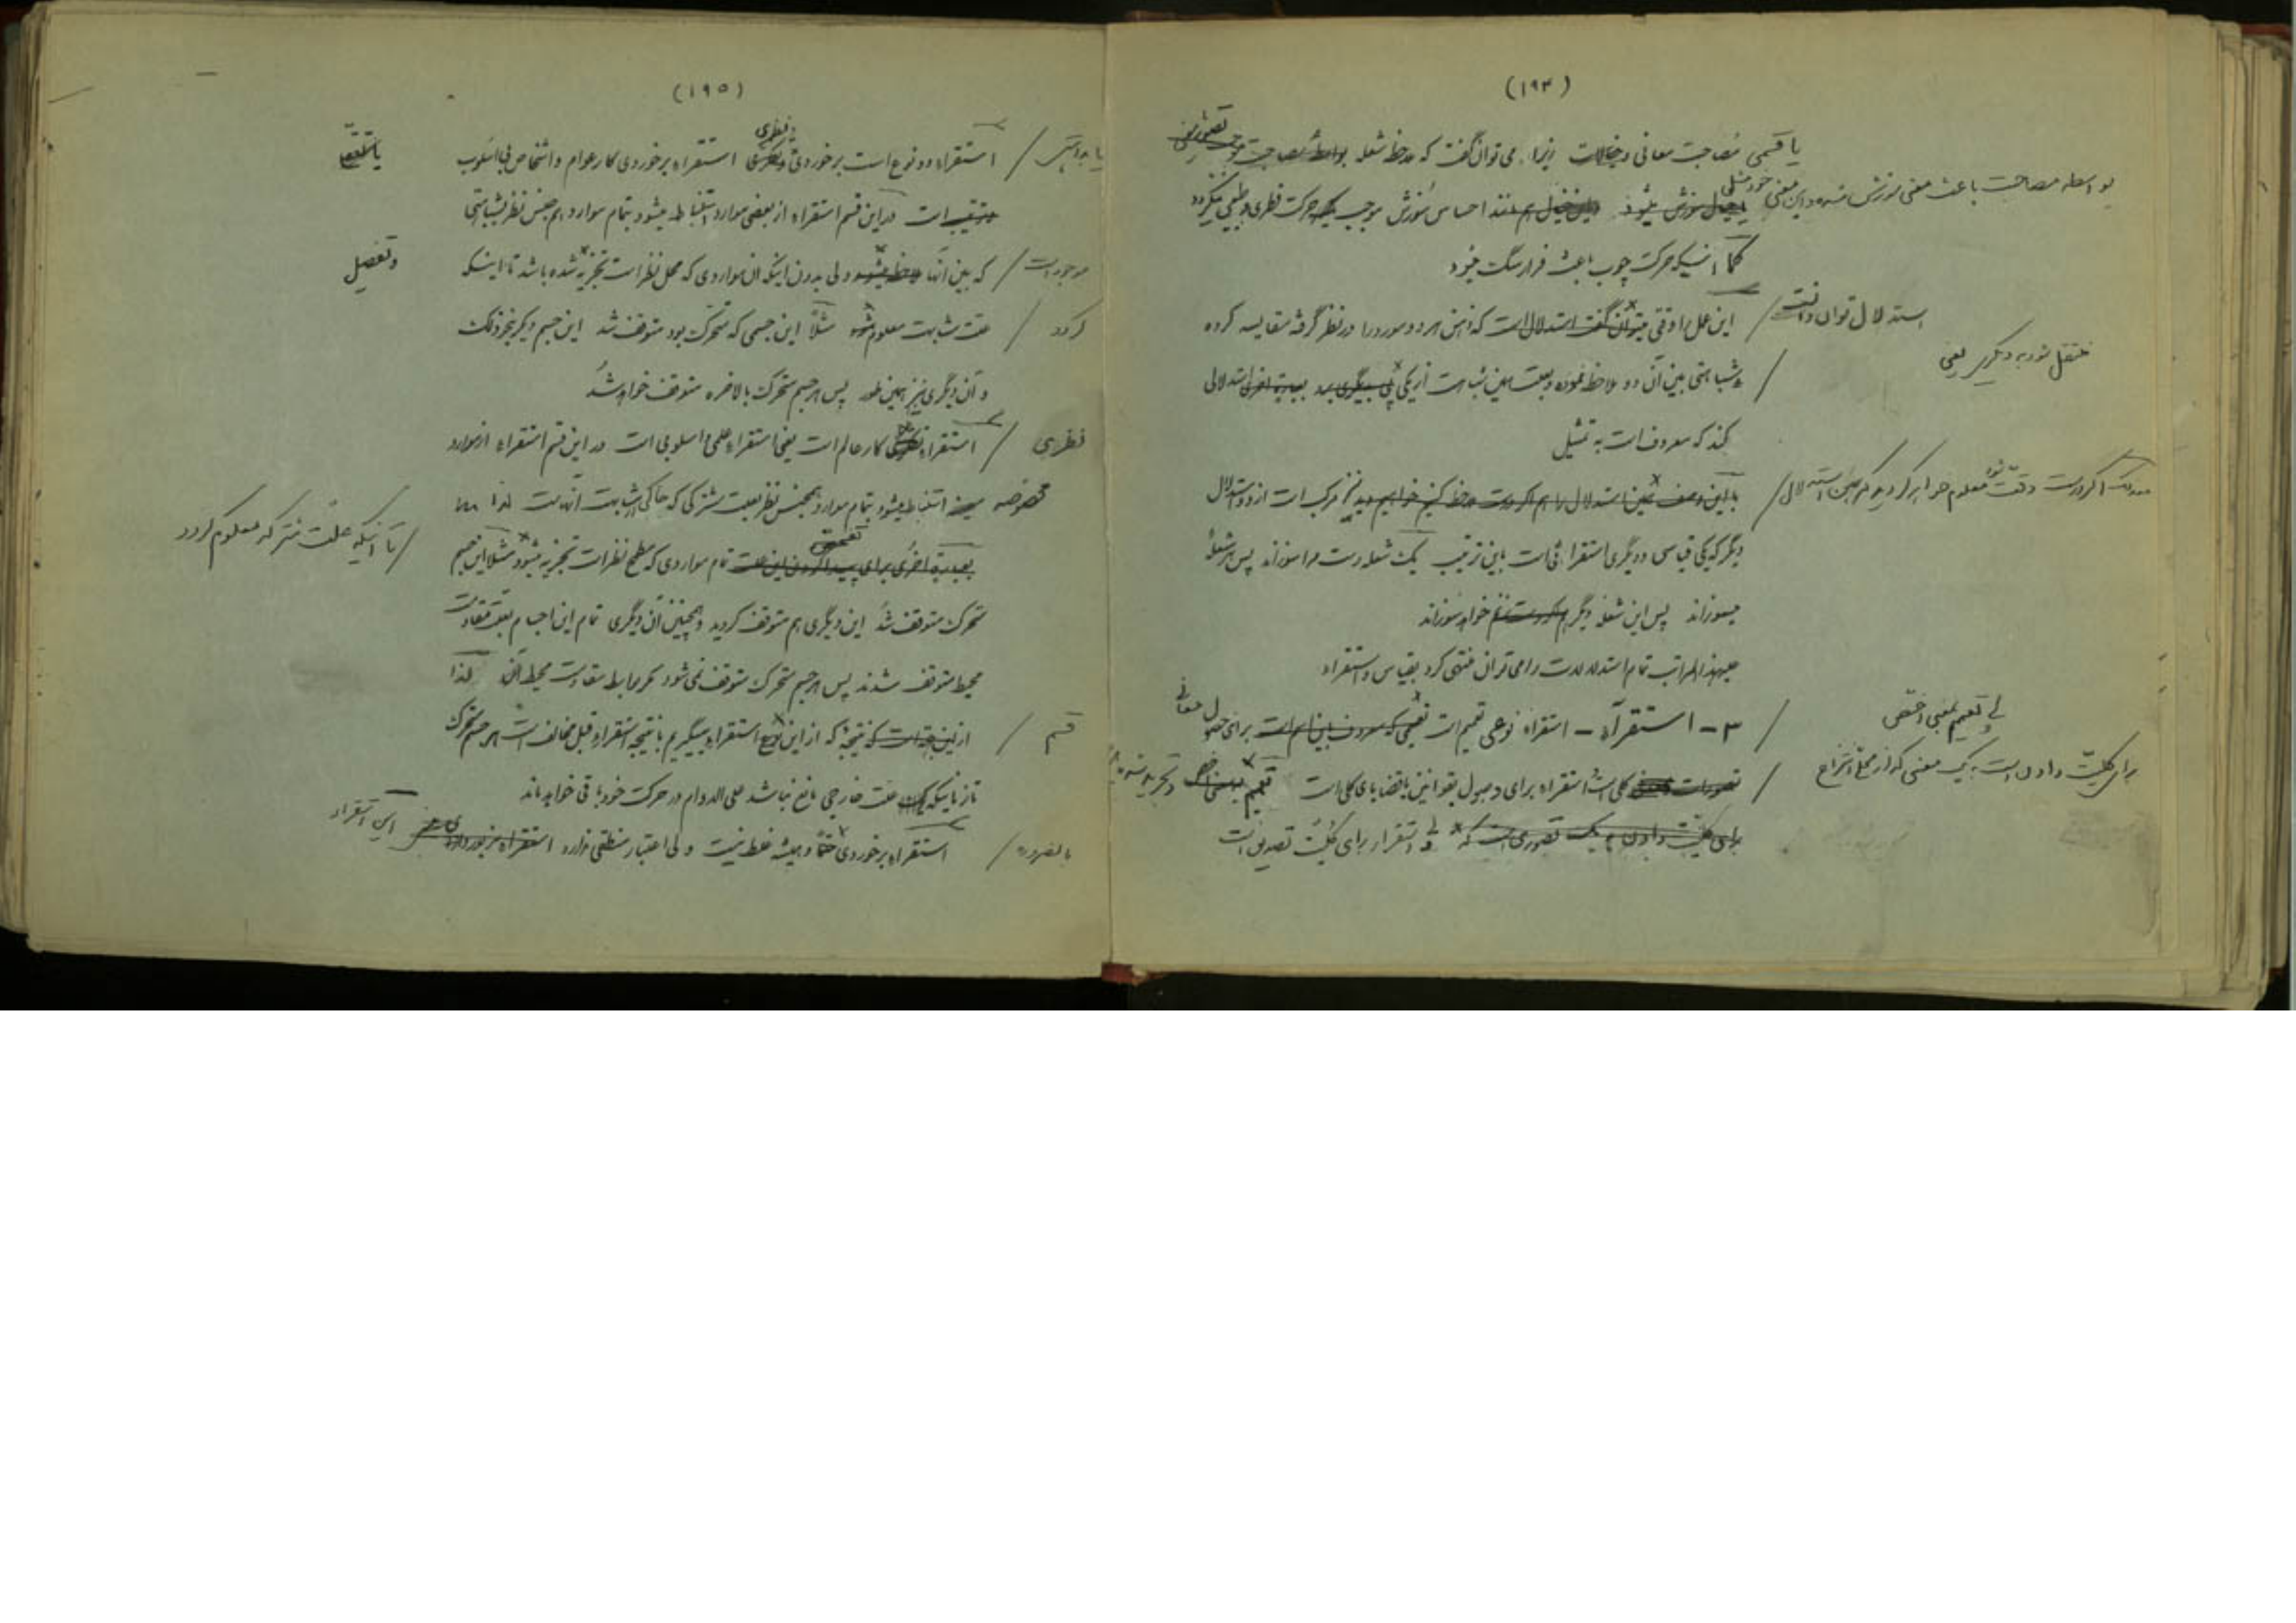 (۱۹۴)
یا قسمی مصاحبت معانی و خیالات زیرا می‌توان گفت که ملاحظه شعله بواسطه مصاحبت موجب تصور معنی
بواسطه مصاحبت باعث معنی سوزش شده و این معنی خود مثل
خیال سوزش میشود و این خیال هم مانند احساس سوزش موجب یک حرکت فطری و طبیعی میگردد
کما اینکه حرکت چوب باعث فرار سگ میشود
استدلال توان دانست
این عمل را وقتی میتوان گفت استدلال است که ذهن هر دو مورد را در نظر گرفته مقایسه کرده
منتقل شود به دیگری یعنی
و شباهتی بین آن دو ملاحظه نموده و بعلت همین شباهت از یکی پی بدیگری ببرد بعبارة اخری استدلالی
کند که معروف است به تمثیل
معذلک اگر درست دقت شود معلوم خواهد گردید که همین استدلال
با این وصف همین استدلال را هم اگر درست ملاحظه کنیم خواهیم دید نیز مرکب است از دو استدلال
دیگر که یکی قیاسی و دیگری استقرائی است باین ترتیب یک شعله دست مرا سوزاند پس هر شعلهٔ
میسوزاند پس این شعله دیگر هم دست مرا خواهد سوزاند
علیهذا المراتب تمام استدلالات را می‌توان منتهی کرد بقیاس و استقراء
۳ - استقرآء - استقراء نوعی تعمیم است تعمیمی که معروف باین نام است برای حصول معانی
ولی تعمیم بمعنی اخص
تصورات کلی است استقراء برای وصول بقوانین یا قضایای کلی است تعمیم بمعنی اخص
برای کلیت دادن است به یک معنی که از محل انتزاع
برای کلیت دادن به یک تصوری است که ولی استقراء برای کلیت تصدیق است
(۱۹۵)
استقراء دو نوع است برخوردی و فطری استقراء برخوردی کار عوام و اشخاص بی اسلوب
و ترتیب است در این قسم استقراء از بعضی موارد استنباط میشود بتمام موارد هم جنس نظر بشباهتی
موجود است
که بین آنها ملاحظه میشود ولی بدون اینکه آن مواردی که محل نظر است تجزیه شده باشد تا اینکه
و تفصیل
گردد
علت شباهت معلوم شود مثلاً این جسمی که متحرک بود متوقف شد این جسم دیگر نیز
و آن دیگری نیز بهمین طور پس هر جسم متحرک بالاخره متوقف خواهد شد
نظری
استقراء نظری کار عالم است یعنی استقراء علمی و اسلوبی است در این قسم استقراء از موارد
مخصوصه استنباط میشود بتمام موارد همجنس نظر بعلت مشترکی که حاکی از شباهت آنهاست لذا
تا اینکه علت مشترکه معلوم گردد
بعبارة اخری برای پیدا کردن این علت تمام مواردی که مطمح نظر است تجزیه میشود مثلاً این جسم
متحرک متوقف شد این دیگری هم متوقف گردید و همچنین آن دیگری تمام این اجسام بعلت مقاومت
محیط متوقف شدند پس هر جسم متحرک متوقف نمی‌شود مگر بواسطه مقاومت محیط آن لذا
قسم
از این جهت است که نتیجهٔ که از این نوع استقراء میگیریم با نتیجه استقراء قبل مخالف است هر جسم متحرک
تا زمانیکه یک علت خارجی مانع نباشد علی الدوام در حرکت خود باقی خواهد ماند
بالضروره
استقراء برخوردی حتماً و همیشه غلط نیست ولی اعتبار منطقی ندارد استقراء مزبور
این استقراء